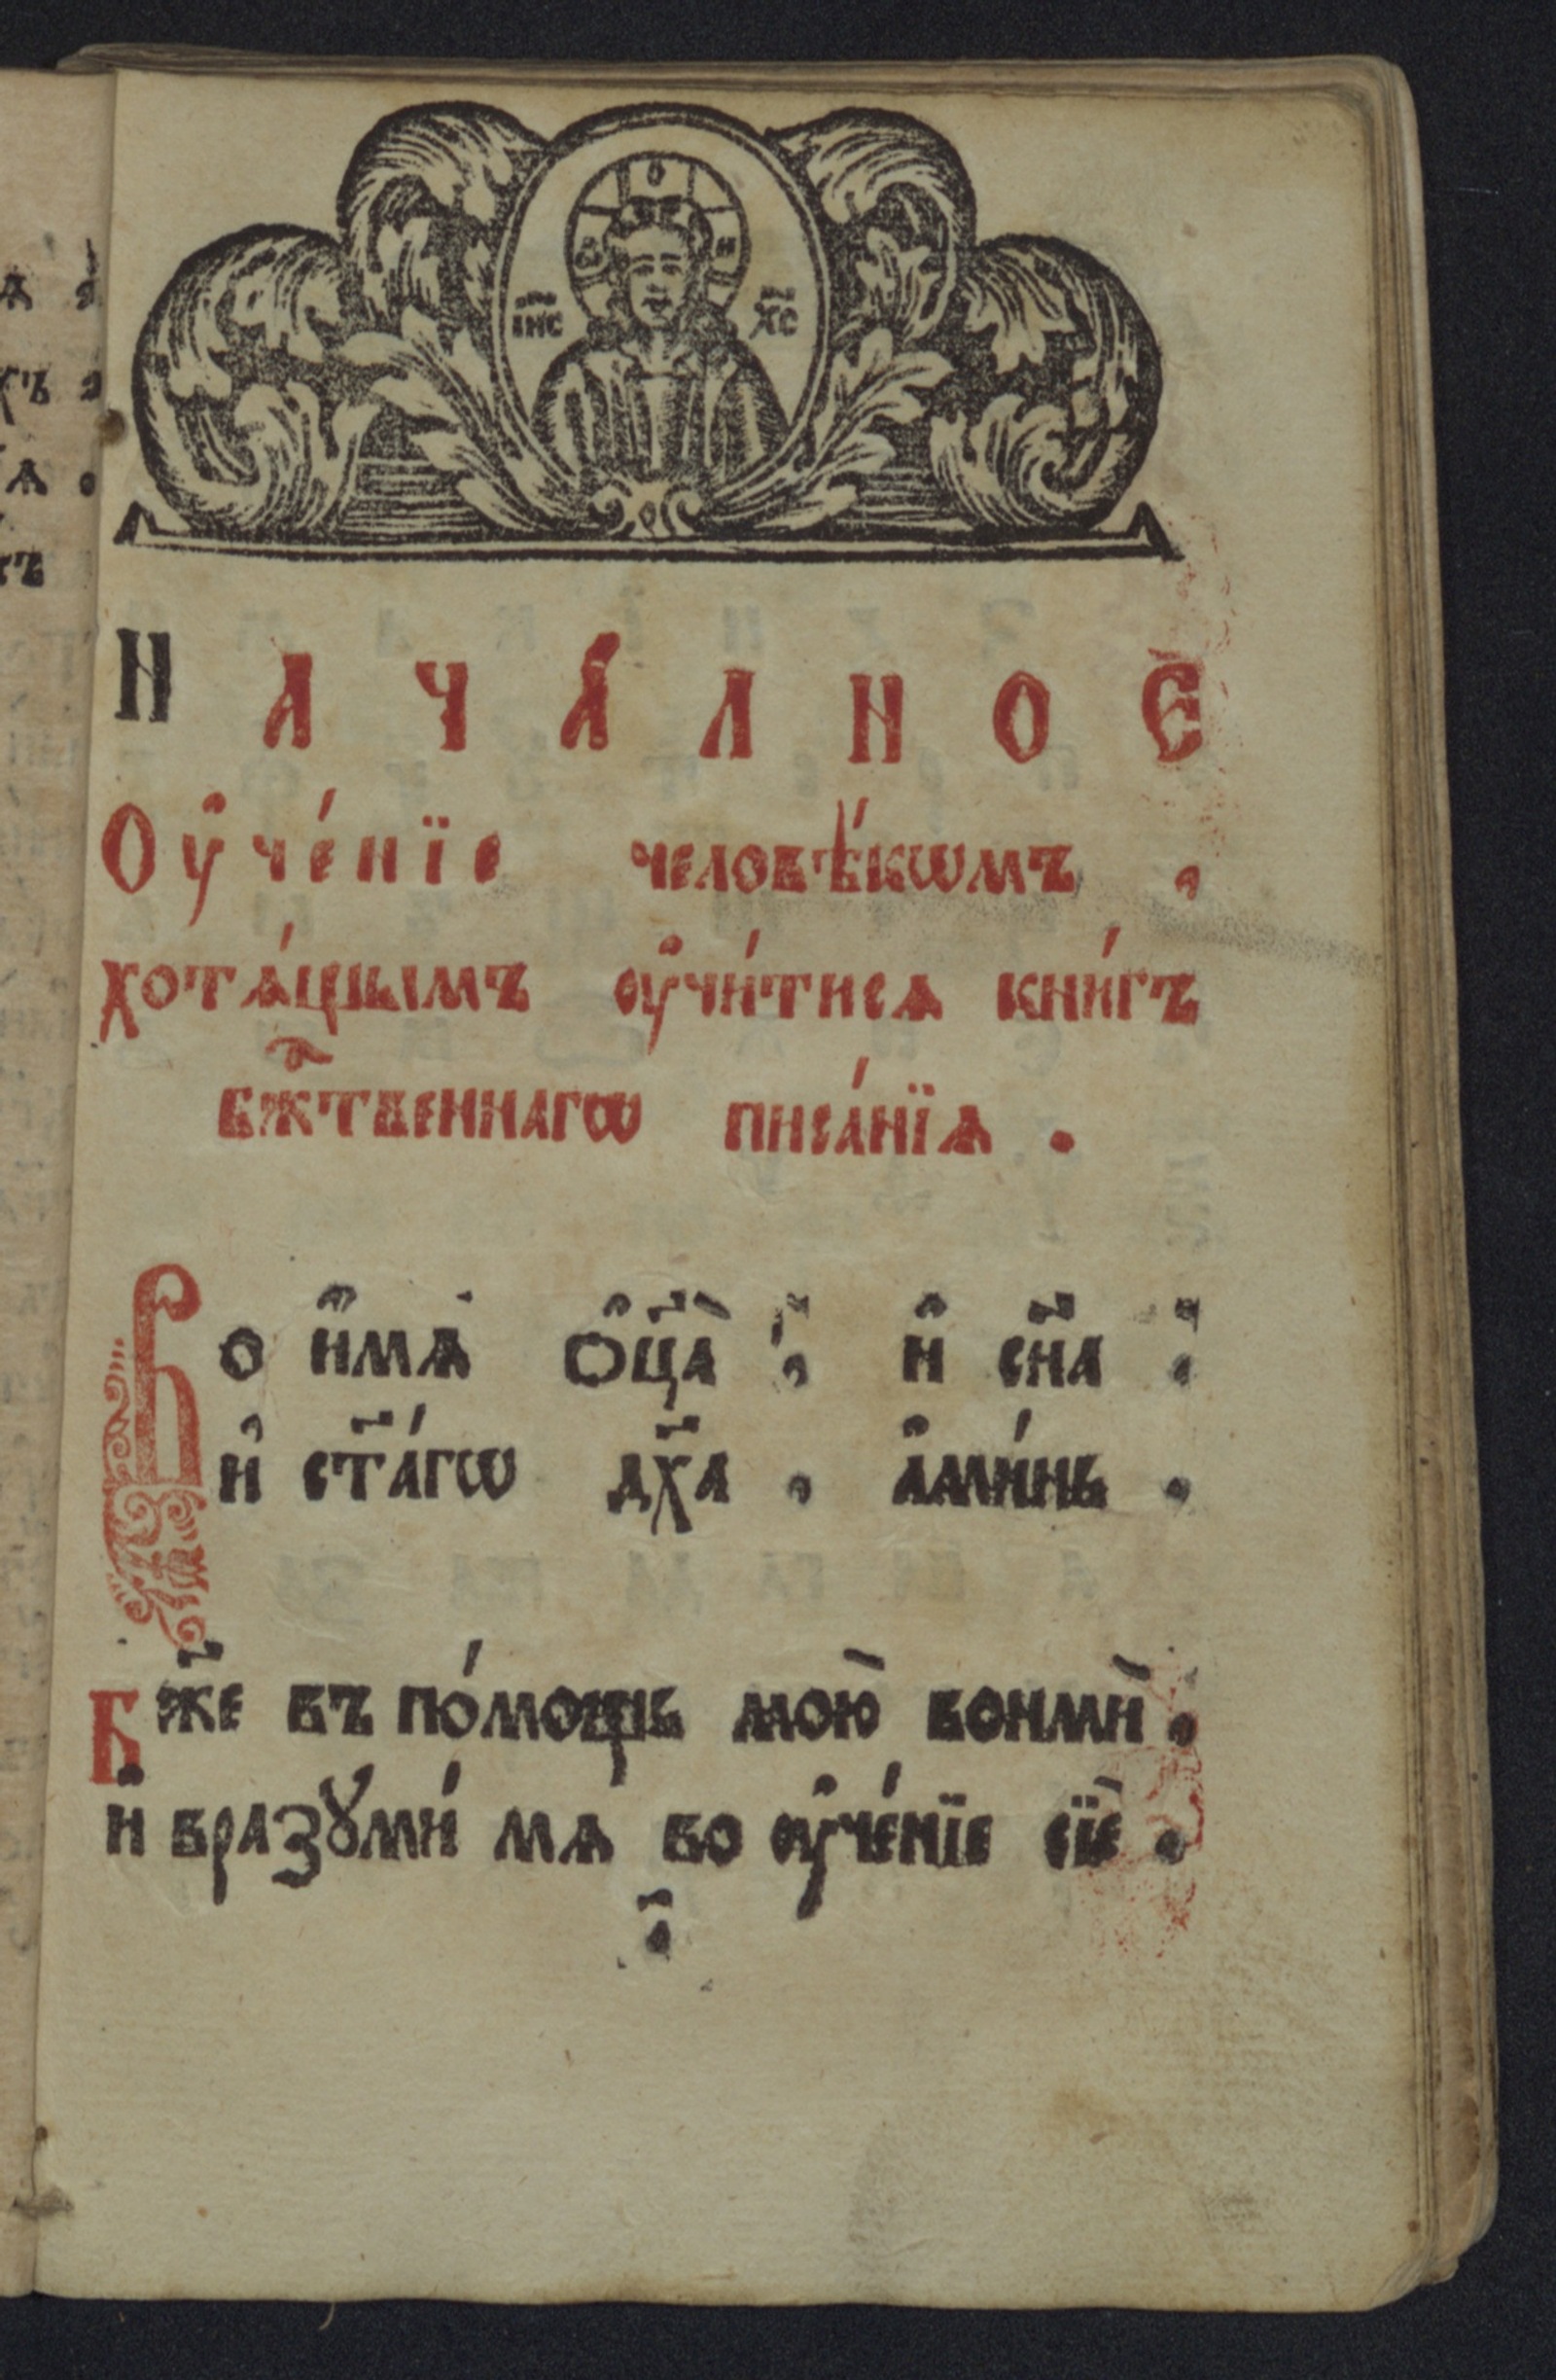 І҆И҃С Х҃С
НАЧА́ЛНОЕ
Оу҆че́нїе человѣ́кѡмъ ,
хотѧ́щымъ оу҆чи́тисѧ кни́гъ
бжⷭ҇твеннагѡ писа́нїѧ .
Во и҆́мѧ ѻ҆ц҃а̀ , и҆ сн҃а ,
и҆ ст҃а́гѡ дх҃а , а҆ми́нь ,
Бж҃е въ по́мощь мою̀ вонмѝ ,
и҆ вразꙋми́ мѧ во оу҆че́нїе сїѐ ,
а҃